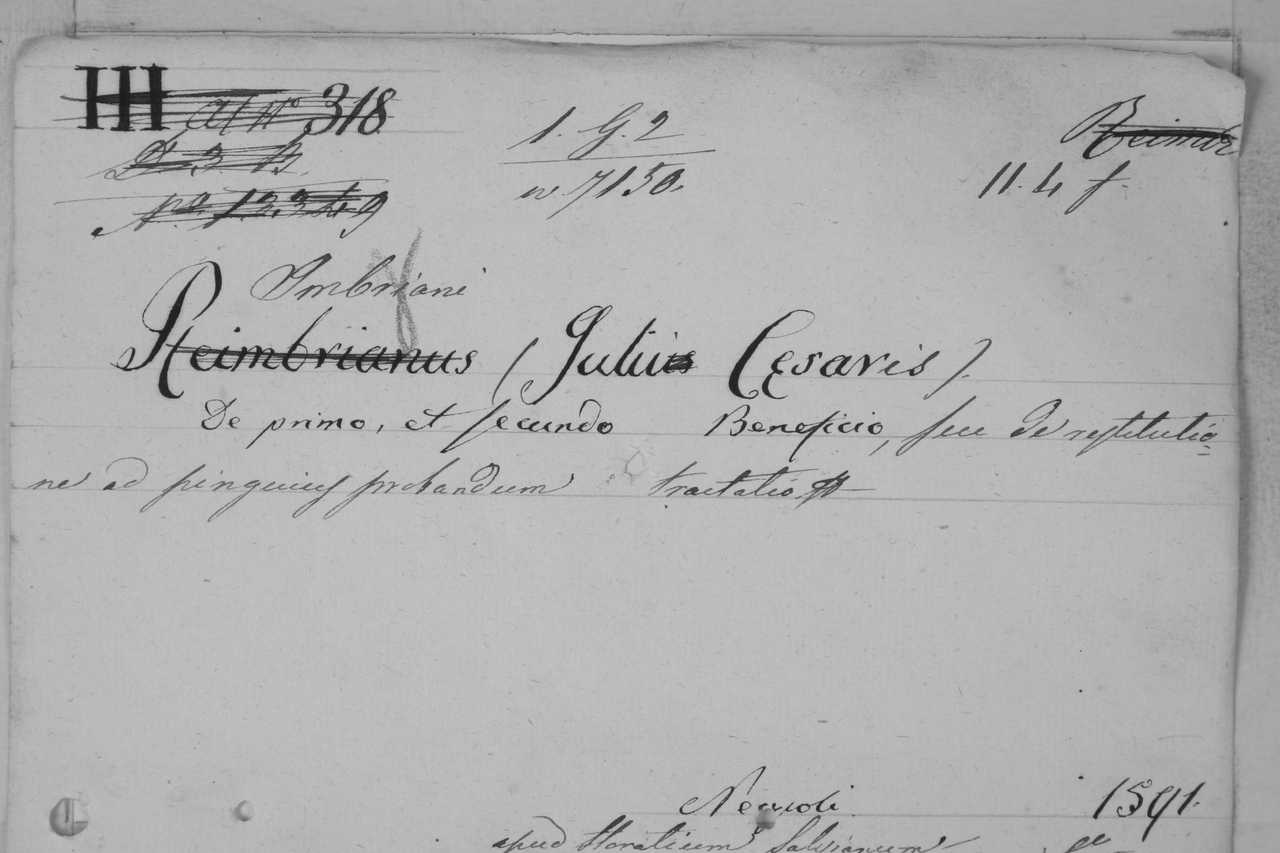 HH al N.º 318
1. G. 2
Reimar
D. 3 B.
n 7150.
11. 4 f.
N.º 1. 2. 3 4 9
Imbriani
Reimbrianus (Julius Cesaris).
De primo, et secundo Beneficio, seu de restitutio-
ne ad pinguius probandum tractatio
Neapoli 1591.
apud Horatium Salvianum 4º